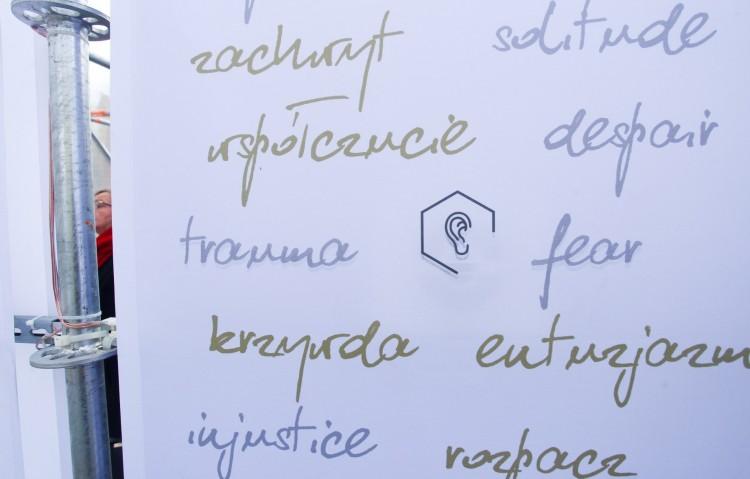 zachwyt
solitude
współczucie
despair
trauma
fear
krzywda
entuzjazm
injustice
rozpacz